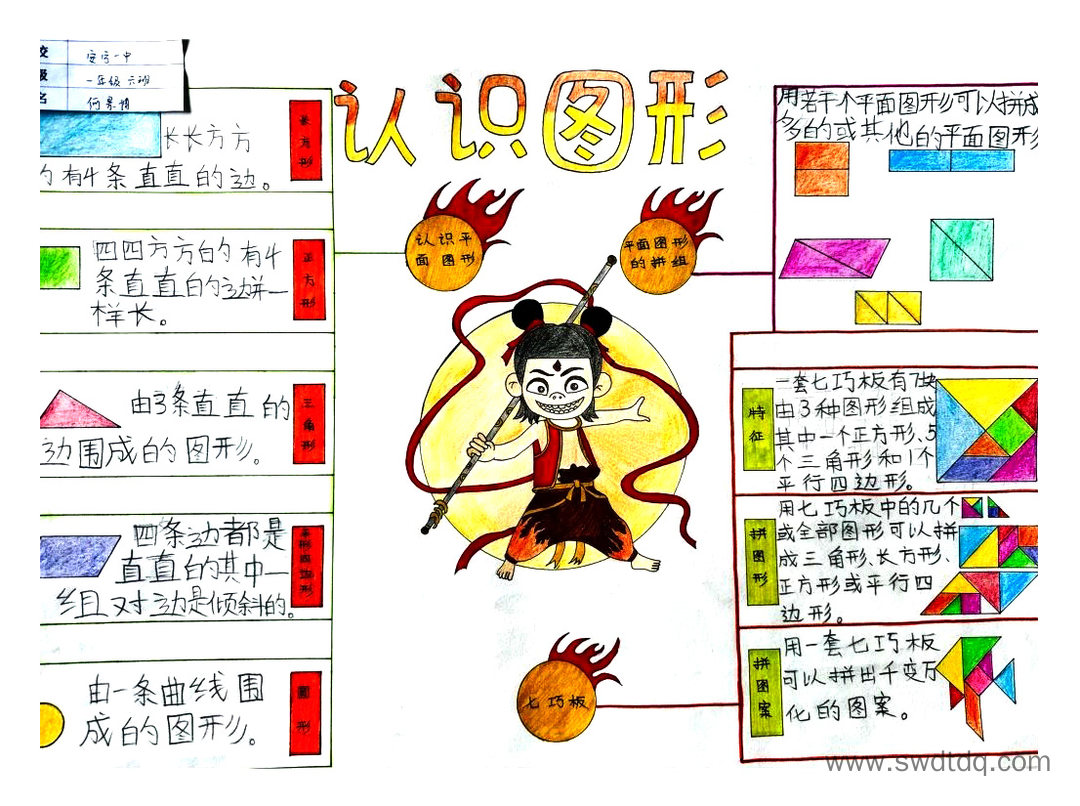 校 安房一中
级 一年级六班
名
认识图形
长长方方
的有4条直直的边。
长方形
四四方方的有4
条直直的边拼一
样长。
正方形
由3条直直的
边围成的图形。
三角形
四条边都是
直直的其中一
组对边是倾斜的。
平行四边形
由一条曲线围
成的图形。
圆形
认识平
面图形
平面图形
的拼组
七巧板
用若干个平面图形可以拼成
多的或其他的平面图形
特征
一套七巧板有7块
由3种图形组成
其中一个正方形、5
个三角形和1个
平行四边形。
拼图形
用七巧板中的几个
或全部图形可以拼
成三角形、长方形、
正方形或平行四
边形。
拼图案
用一套七巧板
可以拼出千变万
化的图案。
www.swdtdq.com